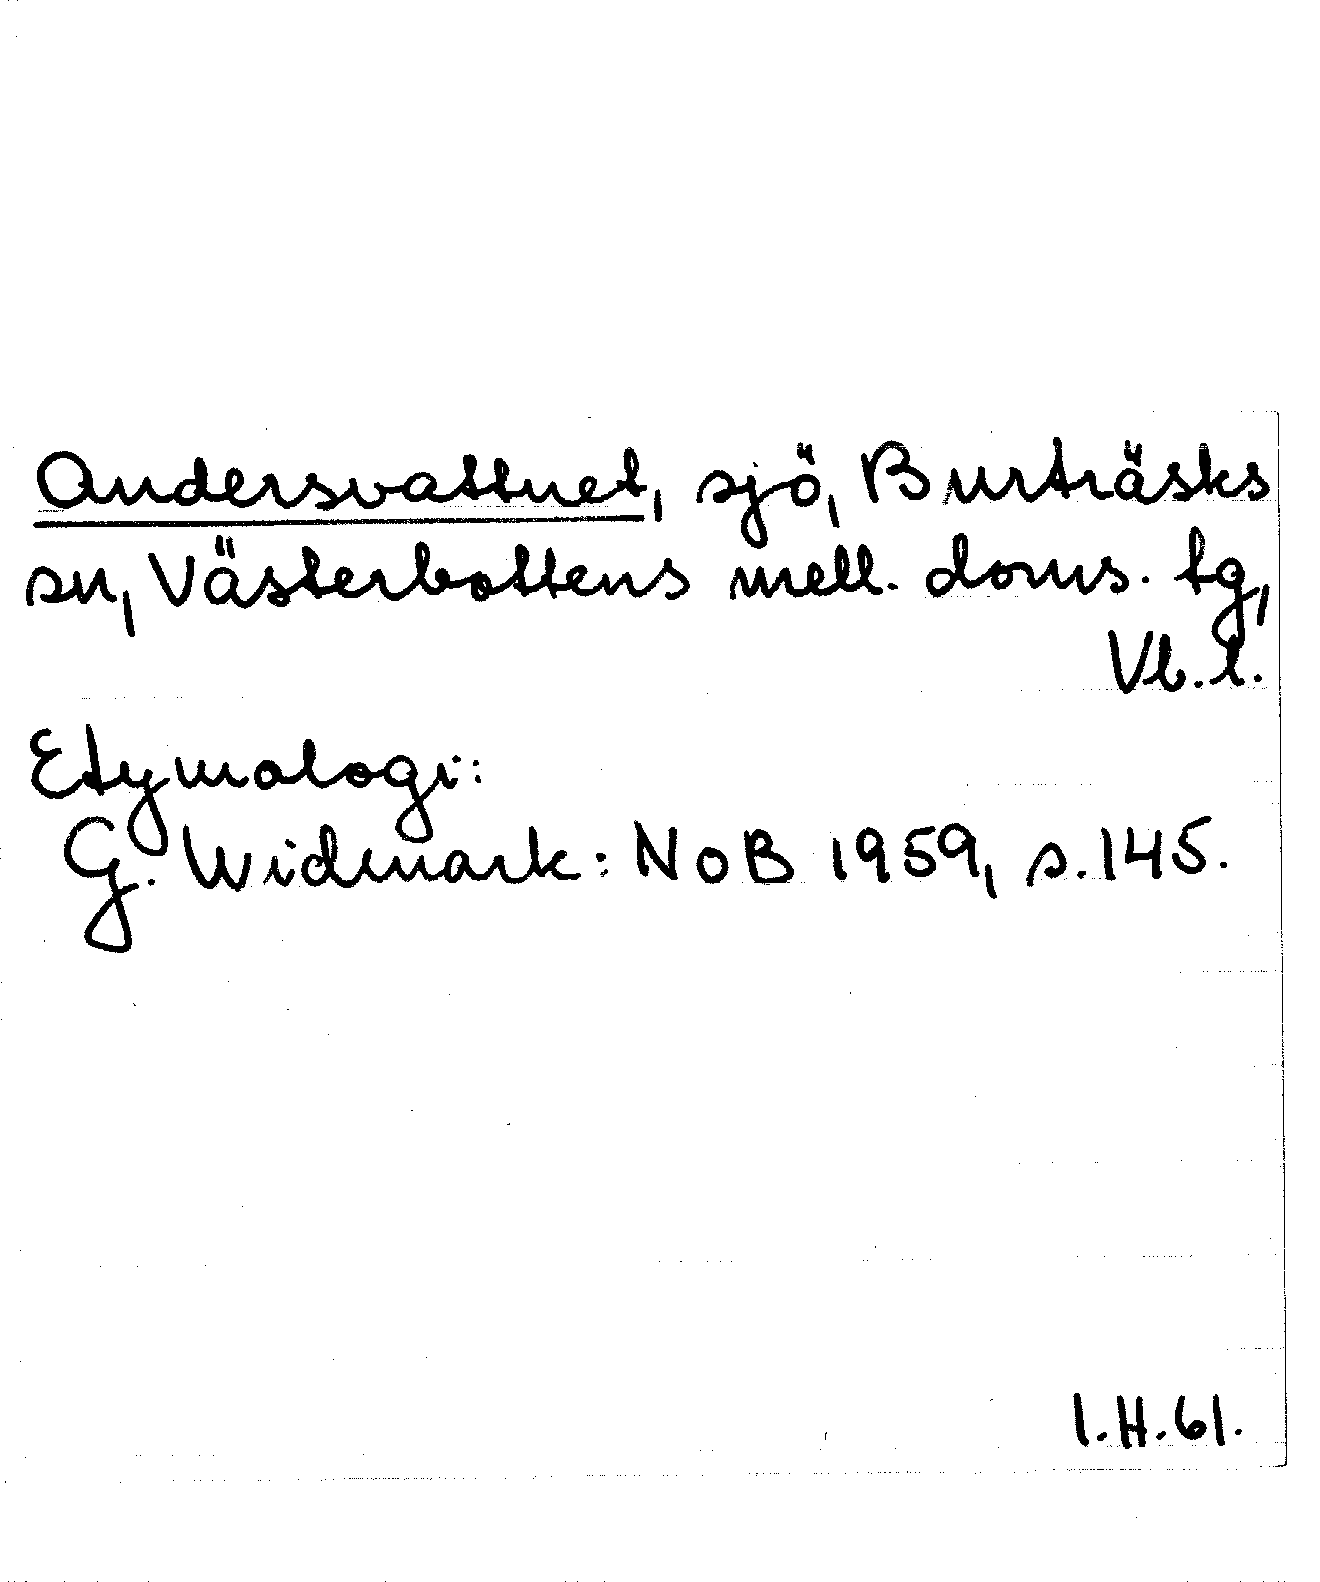 Andersvattnet, sjö, Burträsks
sn, Västerbottens mell. doms. tg,
Vb. l.
Etymologi:
G. Widmark: NoB 1959, s. 145.
I.H. 61.